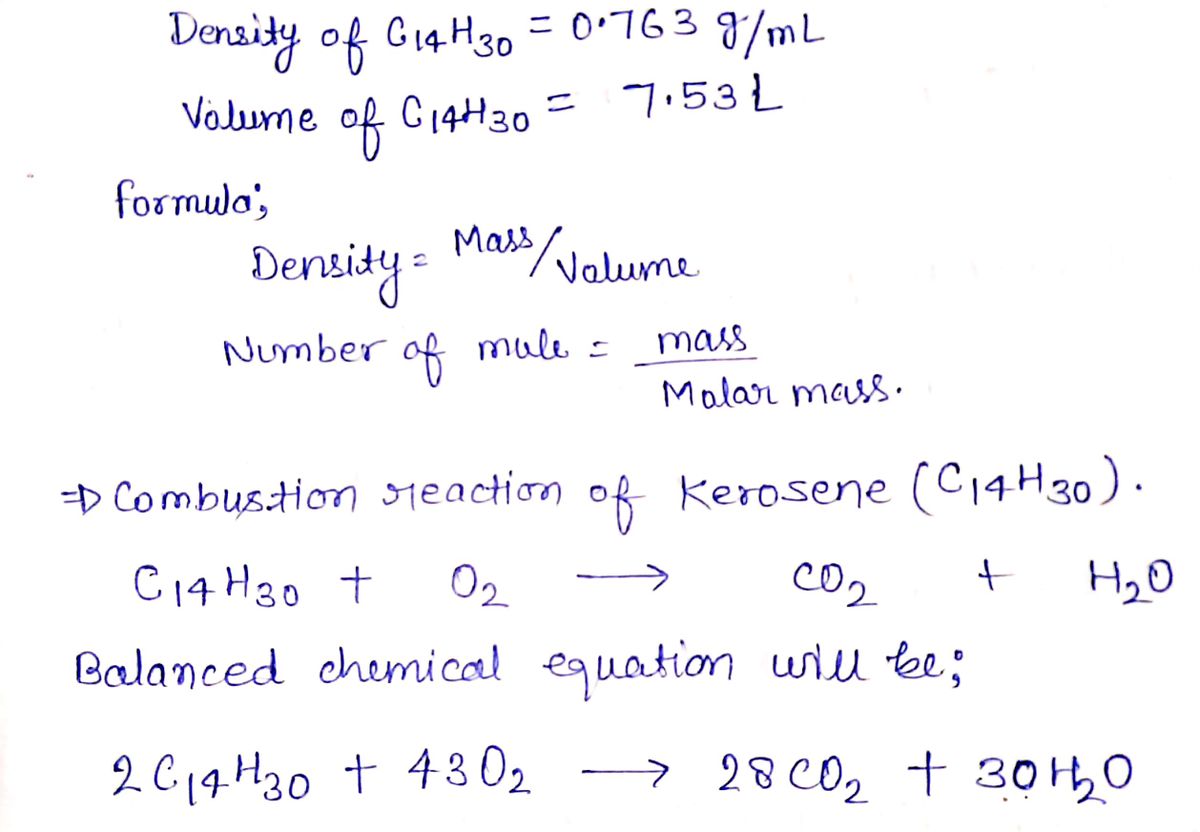 Density of C14H30 = 0.763 g/mL
Volume of C14H30 = 7.53 L
formula;
Density = Mass/Volume
Number of mole = mass
Molar mass.
⇒ Combustion reaction of Kerosene (C14H30).
C14H30 + O2 → CO2 + H2O
Balanced chemical equation will be;
2C14H30 + 43O2 → 28CO2 + 30H2O